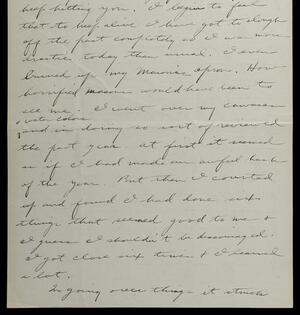 keep hitting you. I begin to feel
that to keep alive I have got to slough
off the past completely so I was more
erratic today than usual. I even
burned up my Masonic apron. How
horrified masons would have been to
see me. I went over my canvases
water colors
and in doing so sort of reviewed
the past year at first it seemed
as if I had made an awful hash
of the year. But then I counted
up and found I had done six
things that seemed good to me &
I guess I shouldn't be discouraged.
I got close six times & I learned
a lot.
In going over things it struck